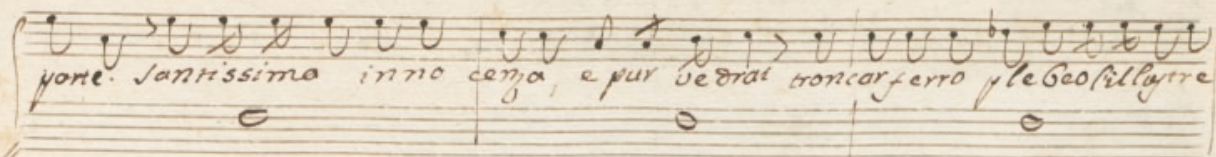 porte. Santissima innocenza, e pur vedrai troncar ferro plebeo l'illustre